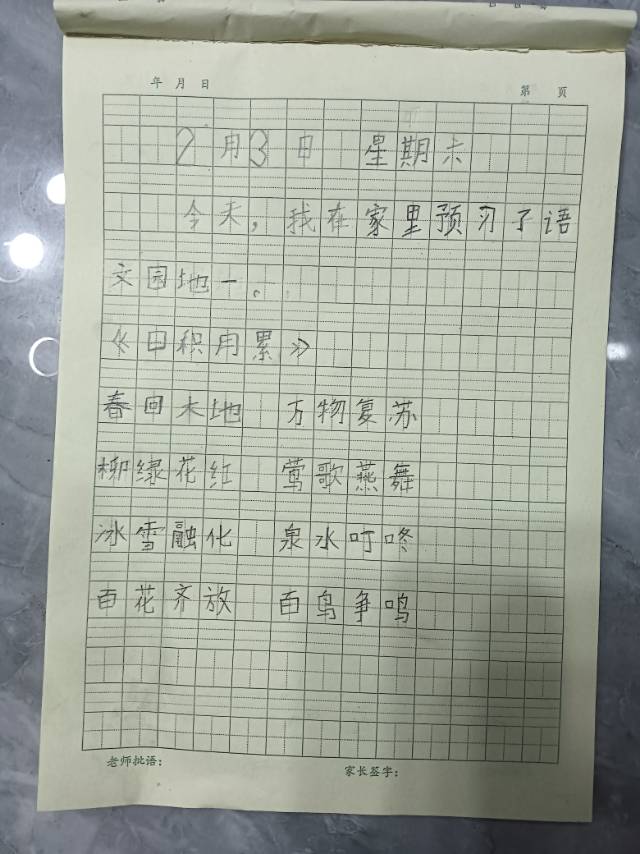 年 月 日 第 页
2月3日 星期六
今天,我在家里预习了语
文园地一。
《日积月累》
春回大地 万物复苏
柳绿花红 莺歌燕舞
冰雪融化 泉水叮咚
百花齐放 百鸟争鸣
老师批语: 家长签字: